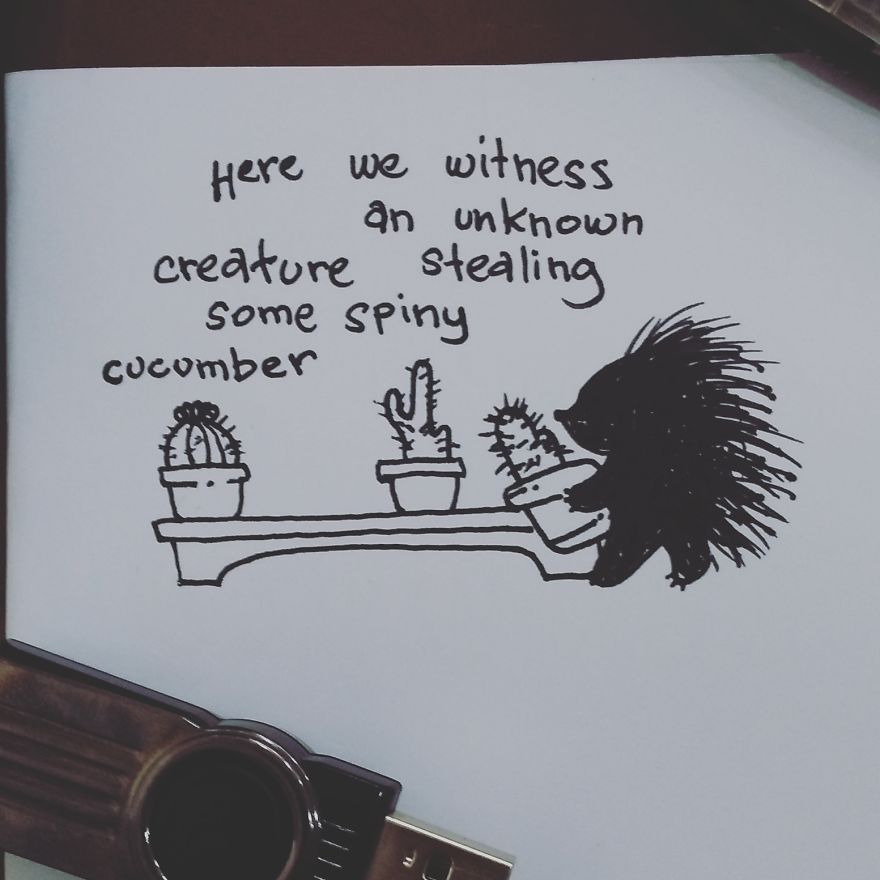 Here we witness
an unknown
creature stealing
some spiny
cucumber